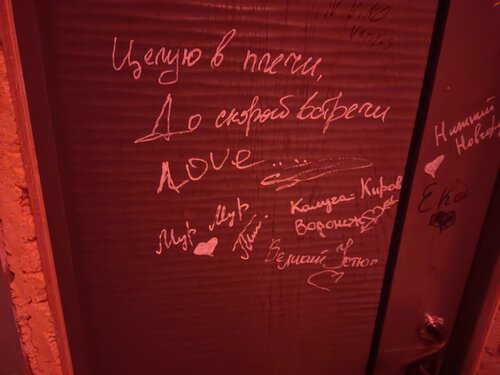 Целую в плечи,
До скорой встречи
LOVE
Мур Мур
Калуга-Киров
Воронеж
Великий Устюг
Нижний
Новгород
Ека